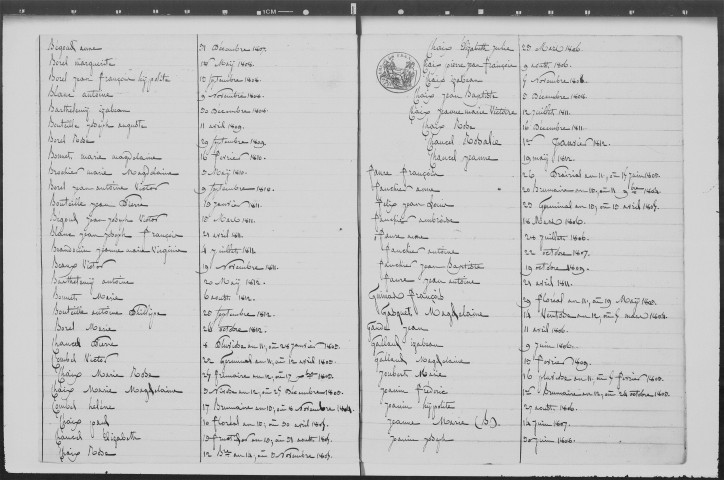 Bégoud anne 21 Décembre 1807.
Borel marguerite 14 May 1808.
Borel jean françois hippolite 12 septembre 1808.
Blanc antoine 9 Novembre 1808.
Barthelemy izabeau 20 Décembre 1808.
Bouteille joseph auguste 11 avril 1809.
Borel Rose 29 septembre 1809.
Bonnet marie magdelaine 16 février 1810.
Brochier marie Magdelaine 5 May 1810.
Borel jean antoine Victor 9 septembre 1810.
Bouteille jean Pierre 10 janvier 1811.
Bégoud jean joseph Victor 10 Mars 1811.
Blanc jean joseph françois 21 avril 1811.
jeanne marie Virginie 4 juillet 1811.
Victor 19 Novembre 1811.
Barthelemy antoine 20 May 1812.
Bonnet Marie 6 août 1812.
Bouteille antoine Philippe 20 septembre 1812.
Borel Marie 26 octobre 1812.
Chancel Pierre 8 Pluviose an 11, ou 28 janvier 1803.
Combel Victor 22 Germinal an 11, ou 12 avril 1803.
Chaix Marie Rose 27 frimaire an 12, ou 17
Chaix Marie Magdelaine 3 Nivose an 12, ou 25 Décembre 1803.
Combel hélène 17 Brumaire an 13, ou 8 Novembre 1804.
Chaix paul 10 floréal an 13, ou 30 avril 1805.
Chancel Elizabeth an 13, ou 31 août 1805.
Chaix Rose 12 an 14, ou 3 Novembre 1805.
Chaix Elizabeth julie 23 Mars 1806.
Chaix pierre jean françois 9 août 1806.
Chaix izabeau 4 Novembre 1806.
Chaix jean Baptiste 2 Décembre 1808.
Chaix jeanne marie Victoire 12 juillet 1811.
Chaix Rose 16 Décembre 1811.
Chancel Rosalie 1er Janvier 1812.
Chancel jeanne 19 may 1812.
Faure françois 26 Prairial an 11, ou 15 juin 1803.
Faucher anne 20 Brumaire an 13, ou 11 9bre 1804.
Félip jean Louis 23 Germinal an 13, ou 13 avril 1805.
Faucher ambroise 18 Mars 1806.
Faure anne 28 juillet 1806.
Faucher antoine 22 octobre 1807.
Faucher jean Baptiste 19 octobre 1809.
Faure jean antoine 21 avril 1811.
françois 29 floréal an 11, ou 19 May 1803.
Gasquet Magdelaine 14 Ventose an 12, ou 5 mars 1804.
Gaude jean 11 avril 1806.
Galland izabeau 9 juin 1806.
Galland Magdelaine 10 février 1809.
Joubert Marie 16 pluviose an 11, ou 5 février 1803.
Jeanin frédéric 1er Brumaire an 12, ou 24 octobre 1803.
Jeanin hippolite 27 août 1806.
Jeanne Marie (b.) 14 juin 1807.
Jeanin joseph 20 juin 1808.